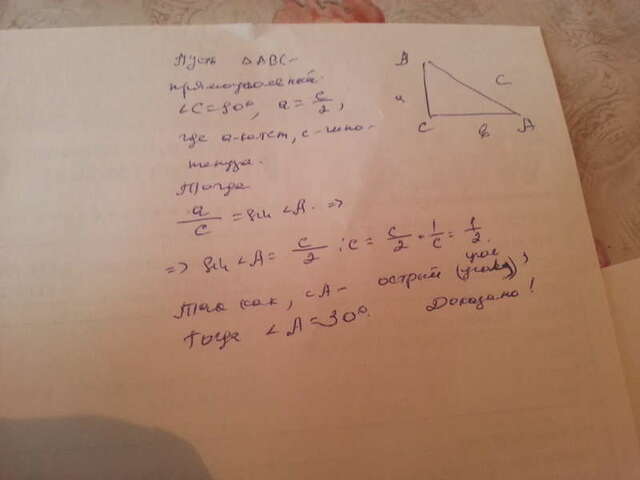 Пусть △ABC-
прямоугольный.
∠C=90°, a = c/2,
где a-катет, c-гипо-
тенуза.
Тогда
a/c = sin ∠A. =>
=> sin ∠A = c/2 : c = c/2 · 1/c = 1/2.
Так как, ∠A- острый (угол),
угол
тогда ∠A=30°. Доказано!
B
a
C
c
b
A